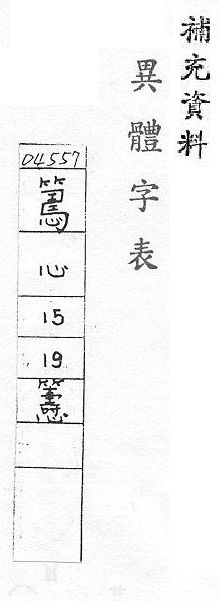 補充資料
異體字表
04557
心
15
19